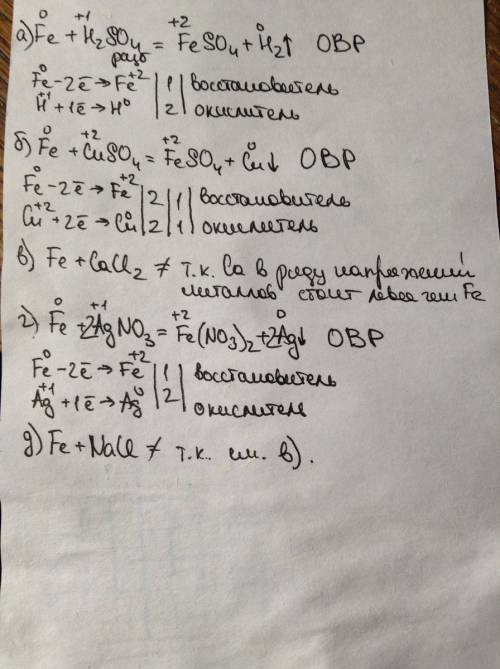 а) Fe⁰ + H₂⁺¹SO₄ = Fe⁺²SO₄ + H₂⁰↑ ОВР
разб
Fe⁰ - 2ē → Fe⁺² | 1 | восстановитель
H⁺¹ + 1ē → H⁰ | 2 | окислитель
б) Fe⁰ + Cu⁺²SO₄ = Fe⁺²SO₄ + Cu⁰↓ ОВР
Fe⁰ - 2ē → Fe⁺² | 2 | 1 | восстановитель
Cu⁺² + 2ē → Cu⁰ | 2 | 1 | окислитель
в) Fe + CaCl₂ ≠ т.к. Ca в ряду напряжений
металлов стоит левее чем Fe
г) Fe⁰ + 2Ag⁺¹NO₃ = Fe⁺²(NO₃)₂ + 2Ag⁰↓ ОВР
Fe⁰ - 2ē → Fe⁺² | 1 | восстановитель
Ag⁺¹ + 1ē → Ag⁰ | 2 | окислитель
д) Fe + NaCl ≠ т.к. см. в).